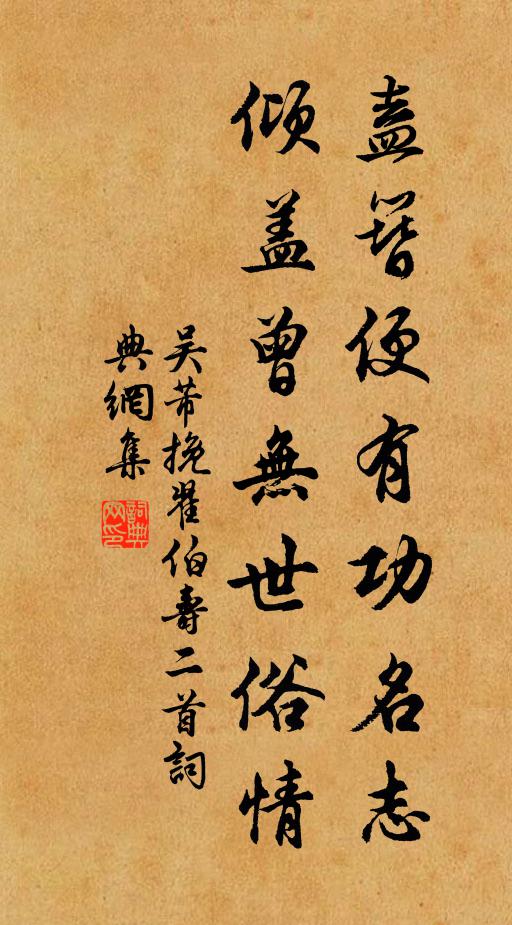 盍簪便有功名志
傾蓋曾無世俗情
吴芾挽翟伯壽二首詞
典網集
詞典
网印